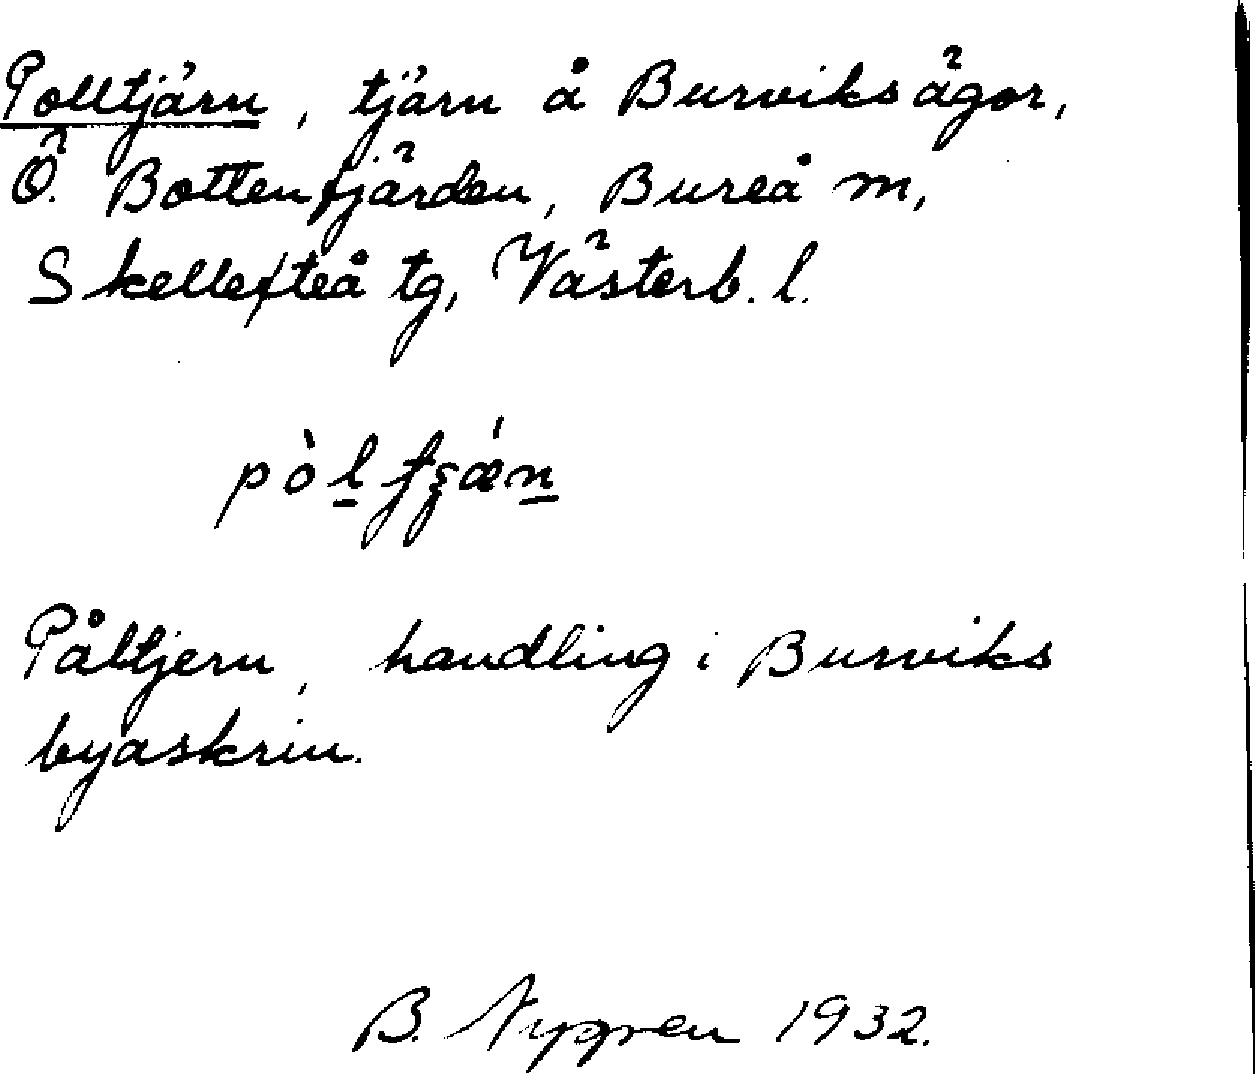 Polltjärn, tjärn å Burviks ägor,
Ö. Bottenfjärden, Bureå m,
Skellefteå tg, Västerb. l.
Påltjern, handling i Burviks
byaskrin.
B. Nygren 1932.